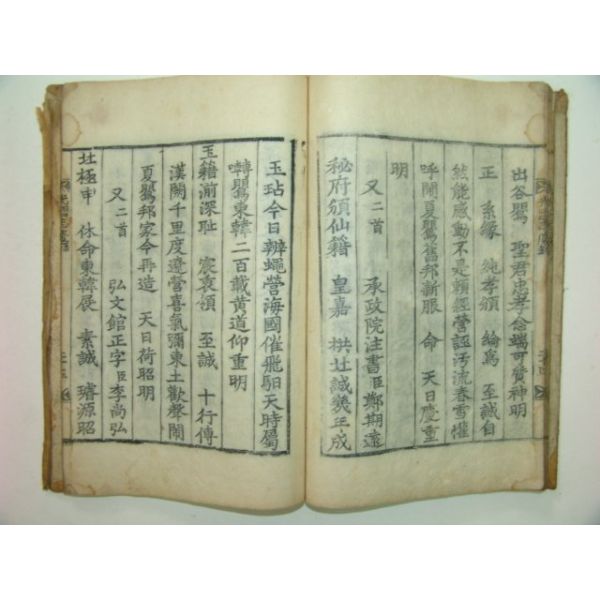 出谷鸎 聖君忠孝念端可質神明
正 系緣 純孝頒 綸爲 至誠自
然能感動不是賴經營誣汚流春雪懽
呼鬧夏鸎舊邦新服 命 天日慶重
明
又二首 承政院注書臣鄭期遠
秘府頒仙籍 皇嘉 拱北誠幾正成
玉玷今日辨蠅營海國催飛馹天時屬
囀鸎東韓二百載黃道仰重明
玉籍湔深恥 宸衷領 至誠 十行傳
漢闕千里度遼營喜氣彌東土歡聲鬧
夏鸎邦家今再造 天日荷昭明
又二首 弘文館正字臣李尚弘
北極申 休命東韓展 素誠 璿源昭